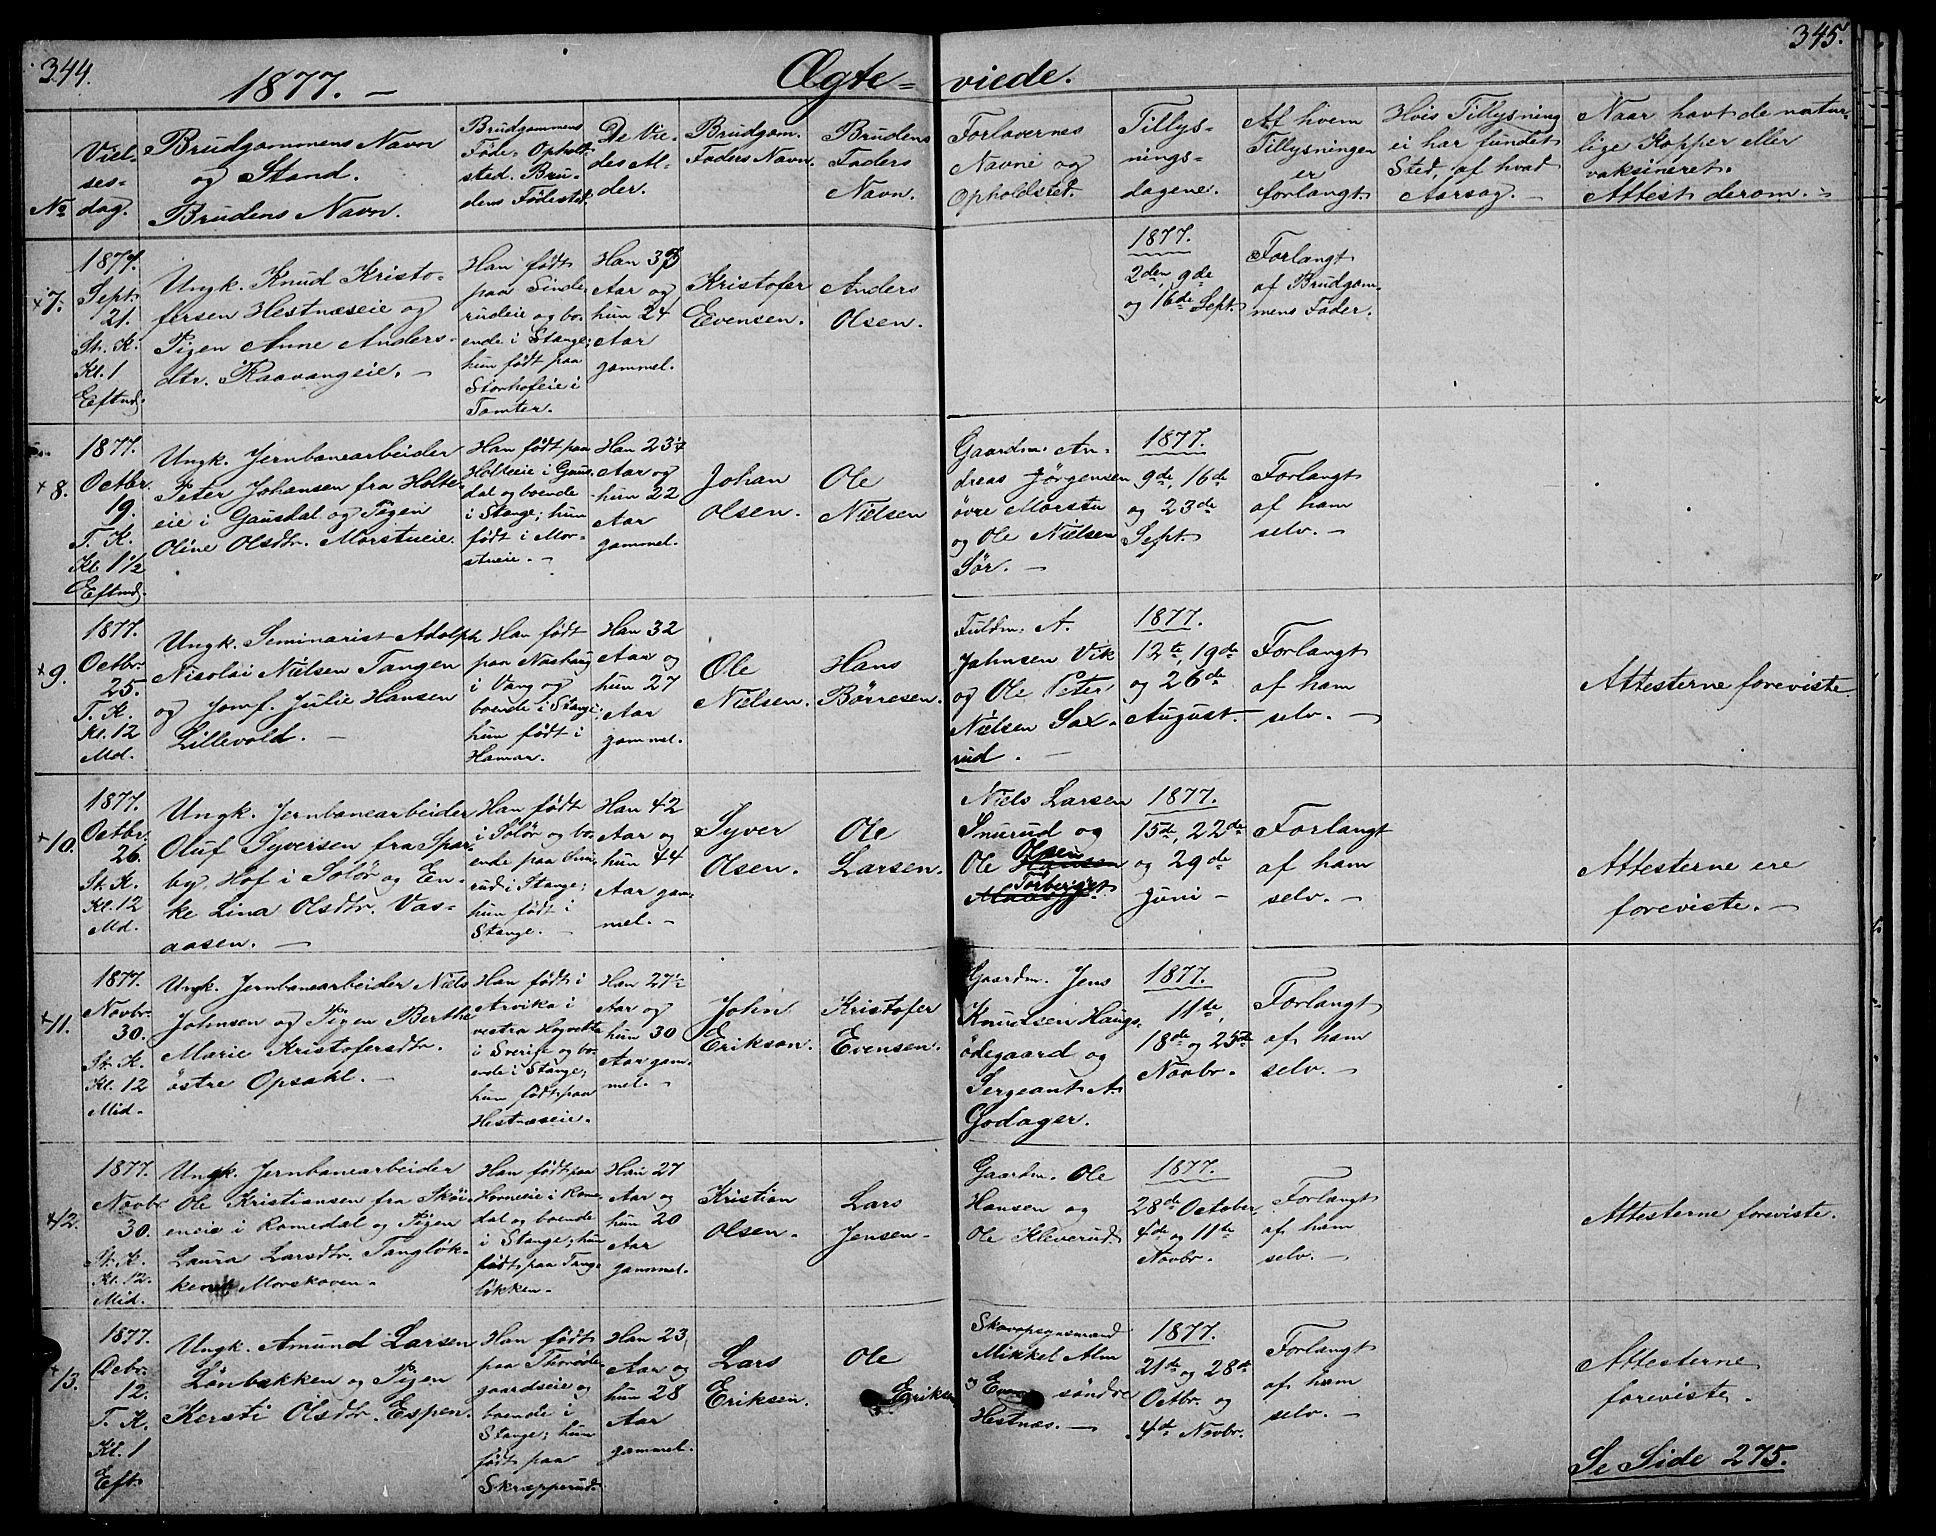 344.
1877. –
Ægte=
viede.
345.
No
Viel-
ses-
dag.
Brudgommens Navn
og Stand.
Brudens Navn.
Brudgommens
Føde- Ophold-
sted. Bru-
dens Fødested.
De Vie-
des Al-
der.
Brudgom.
Faders Navn.
Brudens
Faders
Navn.
Forlovernes
Navne og
Opholdsted.
Tillys-
nings-
dagene.
Af hvem
Tillysningen
er
forlangt.
Hvis Tillysning
ei har fundet
Sted, af hvad
Aarsag. –
Naar havt de natur-
lige Kopper eller
vaksineret.
Attest derom. –
7.
1877.
Sept.
21.
St. K.
Kl. 1
Eftmd.
Ungk. Knud Kristo-
fersen Hestnæseie og
Pigen Anne Anders-
dtr. Raavangeie. –
Han født
paa Sinde-
rudeie og bo-
ende i Stange;
hun født paa
Storhofeie i
Tomter.
Han
Aar og
hun 24
Aar
gammel.
Kristofer
Evensen.
Anders
Olsen.
1877.
2den, 9de
og 16de Sept.
Forlangt
af Brudgom-
mens Fader.
8.
1877.
Octbr.
19.
T. K.
Kl. 1½
Eftmd.
Ungk. Jernbanearbeider
Peter Johansen fra Holte-
eie i Gausdal og Pigen
Oline Olsdtr. Morstueie.
Han født paa
Holteeie i Gaus-
dal og boende
i Stange; hun
født i Mor-
stueie. –
Han 23½
Aar og
hun 22
Aar
gammel.
Johan
Olsen.
Ole
Nielsen
Gaardm. An-
dreas Jørgensen
øvre Morstu
og Ole Nielsen
Sør. –
1877.
9de, 16de
og 23de
Sept.
Forlangt
af ham
selv. –
9.
1877.
Octbr.
25.
T. K.
Kl. 12
Md.
Ungk. Seminarist Adolph
Nicolai Nielsen Tangen
og Jomf. Julie Hansen
Lillevold. –
Han født
paa Nashaug
i Vang og
boende i Stange;
hun født i
Hamar.
Han 32
Aar og
hun 27
Aar
gammel.
Ole
Nielsen.
Hans
Børresen.
Fuldm. A.
Johnsen Vik
og Ole Peter
Nielsen Sax-
rud. –
1877.
12te, 19de
og 26de
August.
Forlangt
af ham
selv. –
Attesterne foreviste
10.
1877.
Octbr.
26.
St. K.
Kl. 12
Md.
Ungk. Jernbanearbeider
Oluf Syversen fra Spar-
by, Hof i Solør og En-
ke Lina Olsdtr. Vas-
aasen. –
Han født
i Solør og bo-
ende paa
rud i Stange;
hun født i
Stange. –
Han 42
Aar og
hun 44
Aar gam-
mel. –
Syver
Olsen.
Ole
Larsen.
Niels Larsen
Snurud og
Ole Hansen Olsen
Torberget
1877.
15de, 22de
og 29de
Juni –
Forlangt
af ham
selv. –
Attesterne ere
foreviste. –
11.
1877.
Novbr.
30.
St. K.
Kl. 12
Mid.
Ungk. Jernbanearbeider Niels
Johnsen og Pigen Berthe
Marie Kristofersdtr.
østre Opsahl. –
Han født i
Arvika i
vestra
i Sverige og bo-
ende i Stange;
hun født paa
Hestnæseie.
Han 27½
Aar og
hun 30
Aar gam-
mel. –
John
Erikson.
Kristofer
Evensen.
Gaardm. Jens
Knudsen Haugs-
ødegaard og
Sergeant A.
Godager.
1877.
11te,
18de og 25de
Novbr.
Forlangt
af ham
selv. –
12.
1877.
Novbr
30.
St. K.
Kl. 12.
Mid.
Ungk. Jernbanearbeider
Ole Kristiansen fra Skøi-
eneie i Romedal og Pigen
Laura Larsdtr. Tangløk-
ken Morskoven.
Han født paa
Horneeie i Rome-
dal og boende
i Stange; hun
født paa Tang-
løkken.
Han 27
Aar og
hun 20
Aar
gammel.
Kristian
Olsen.
Lars
Jensen.
Gaardm. Ole
Hansen og
Ole Kleverud
1877.
28de October,
4de og 11te
Novbr.
Forlangt
af ham
selv. –
Attesterne foreviste.
13.
1877.
Decbr.
12.
T. K.
Kl. 1
Eft.
Ungk. Amund Larsen
Lønbakken og Pigen
Kersti Olsdtr. Espen.
Han født
paa
gaardseie og
boende i
Stange; hun
født paa
Skrapperud.
Han 23
Aar og
hun 28
Aar
gammel.
Lars
Eriksen.
Ole
Eriksen
Skovopsynsmand
Mikkel Alm
og Even søndre
Hestnæs. –
1877.
21de og 28de
Octbr. og
4de Novbr.
Forlangt
af ham
selv. –
Attesterne
foreviste.
Se Side 275.